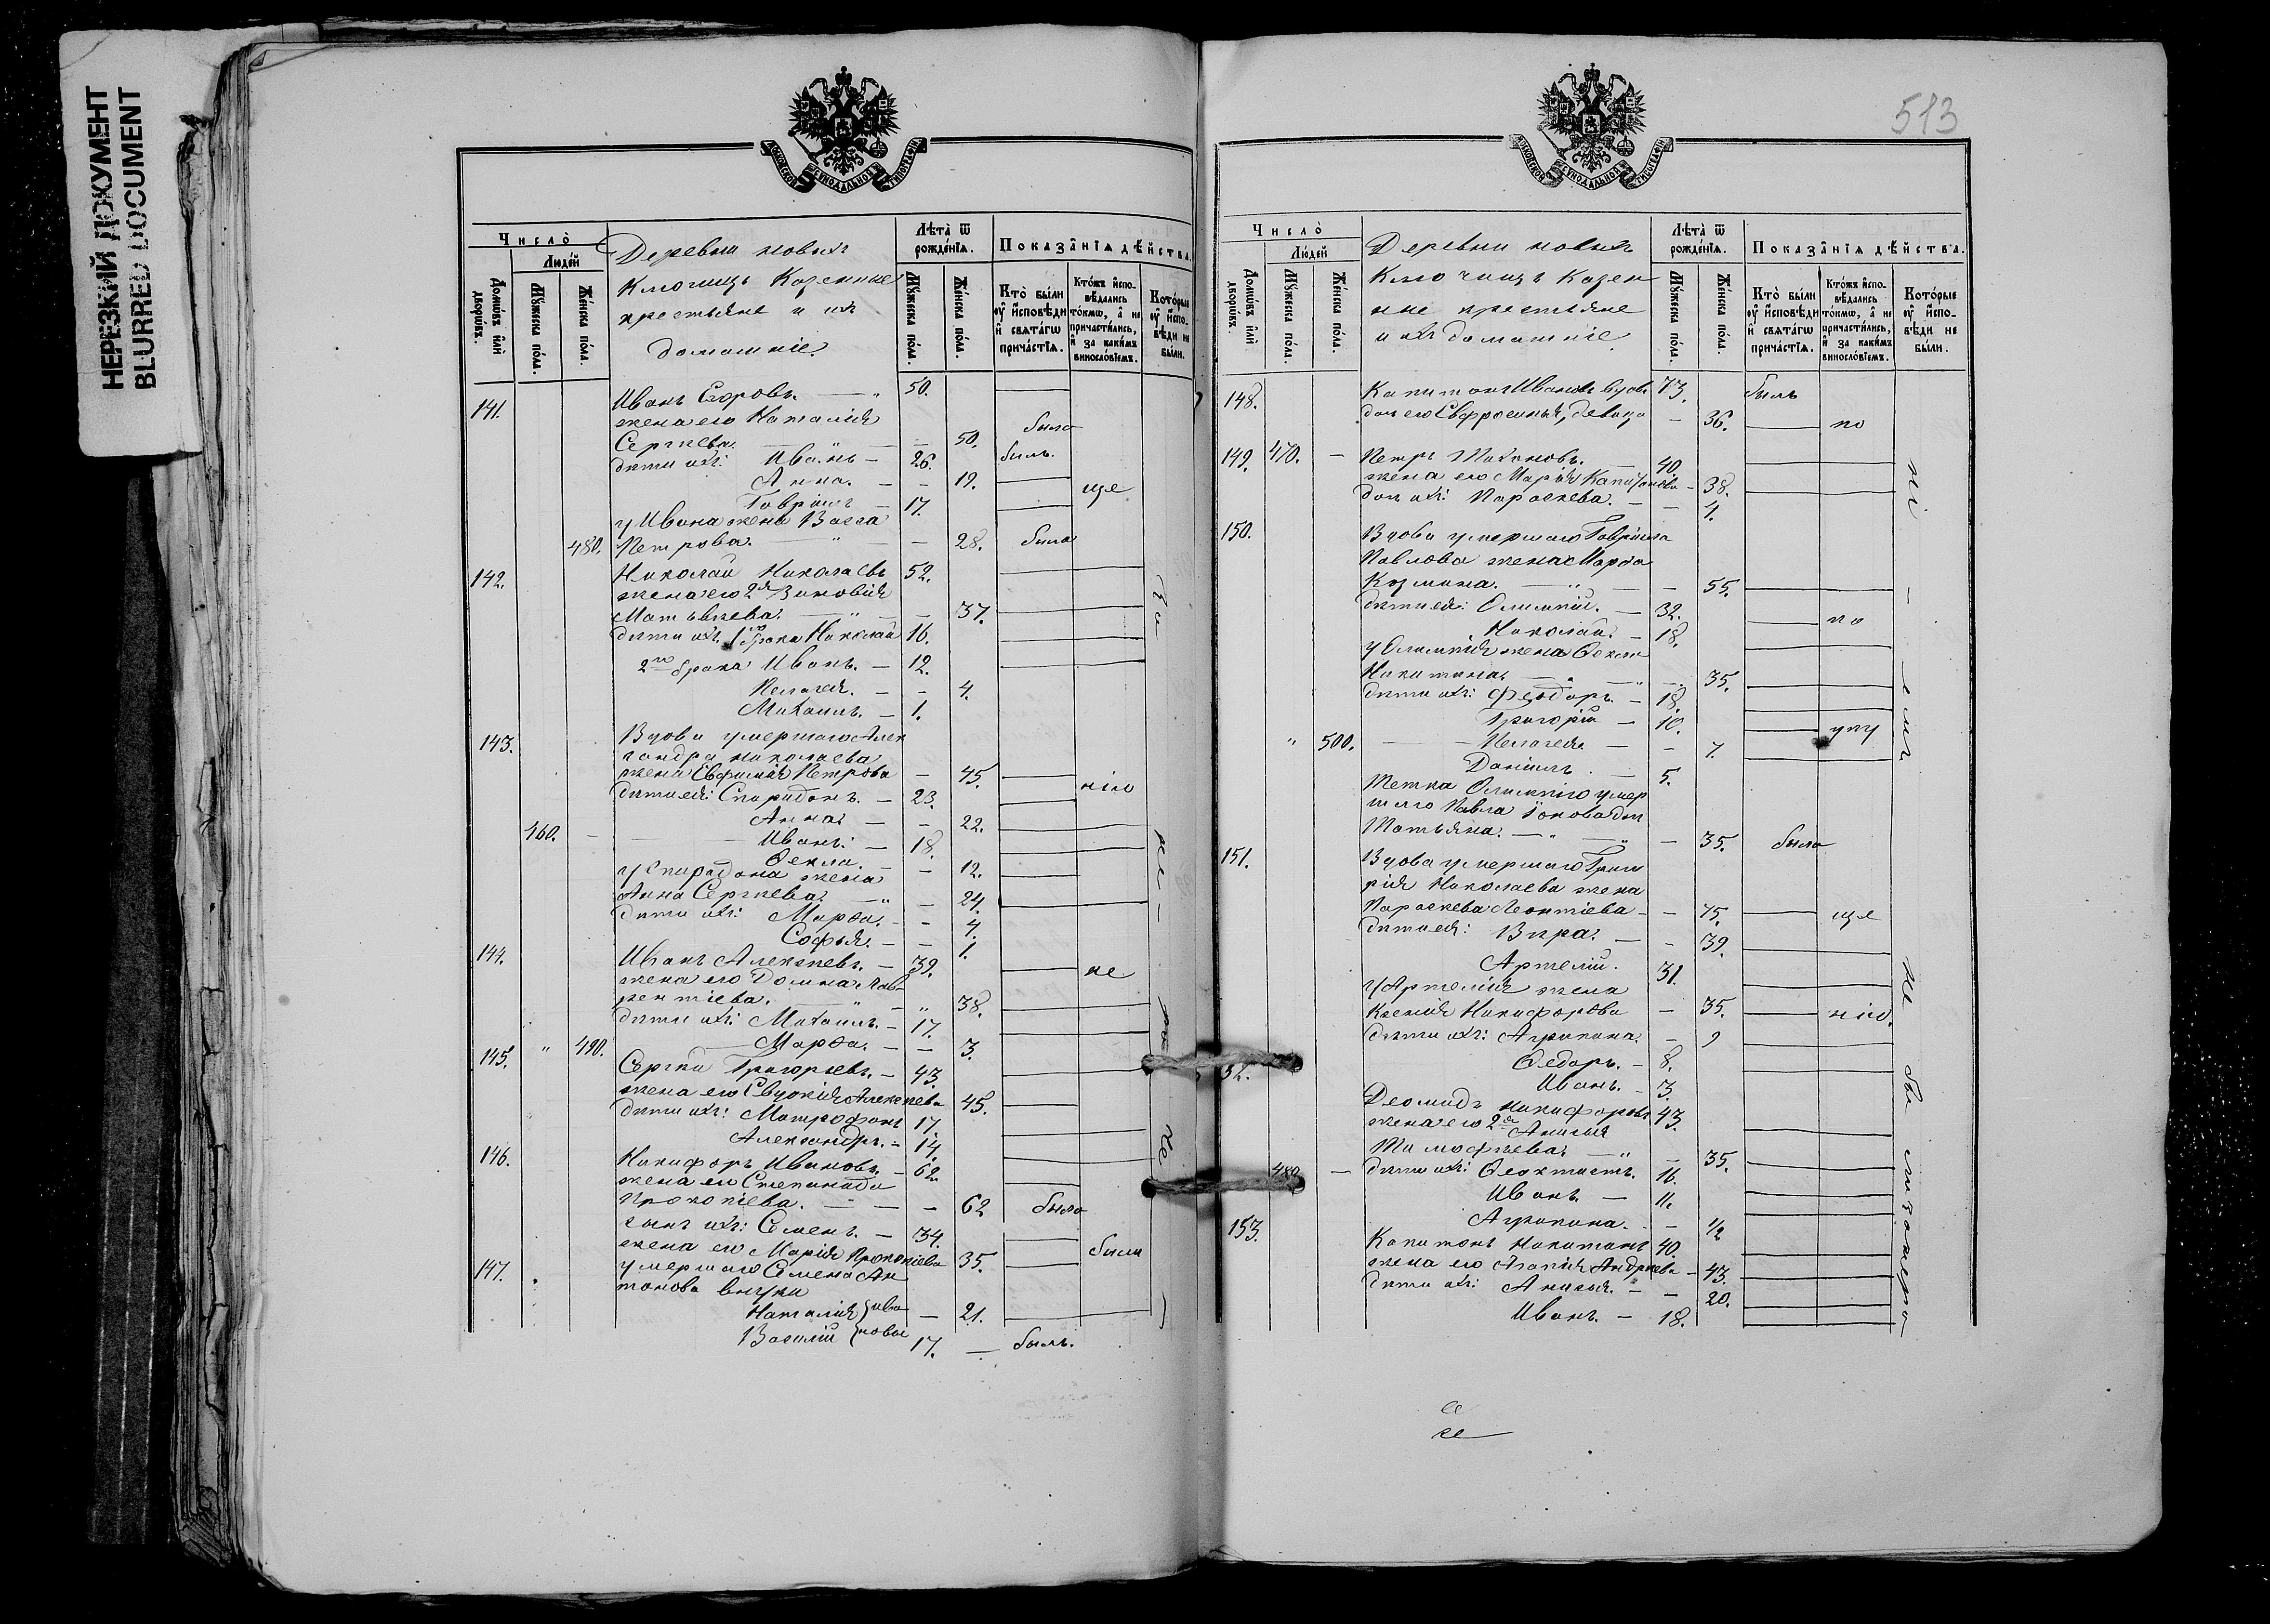 НЕРЕЗКИЙ ДОКУМЕНТ
BLURRED DOCUMENT
МОСКОВСКОЙ СѴНОДАЛЬНОЙ ТИПОГРАФІИ
Число̀
Людéй
Домώвъ и҆лѝ дворώвъ.
Мꙋ́жеска по́ла.
Же́нска по́ла.
Деревни новыхъ
Ключищъ Казенные
крестьяне и ихъ
домашніе.
Лѣ́та ѿ рожде́нїѧ.
Мꙋ́жеска по́ла.
Же́нска по́ла.
Показа̑нїѧ дѣ́йства.
Кто̀ бы́ли оу҆ и҆сповѣди и҆ свѧта́гѡ прича́стїѧ.
Кто́жъ и҆спо-вѣдались то́кмѡ, а҆ не причасти́лись, и҆ за каки́мъ винослόвїемъ.
Кото́рые оу҆ и҆спо-вѣди не бы́ли.
141. Иванъ Егоровъ. — 50.
жена его Наталія
Сергѣева — 50. была
дѣти ихъ: Иванъ — 26. былъ.
Анна. — 19. ще
Гавріилъ — 17.
у Ивана жена Васса
480. Петрова. — 28. была
142. Николай Николаевъ 52.
жена его 2я Зиновія
Матвѣева. — 37.
дѣти ихъ 1го брака Николай 16.
2го брака Иванъ. — 12.
Пелагея. — 4.
Михаилъ. — 1.
143. Вдова умершаго Алек
сандра Николаева
жена Евфимія Петрова — 45. нію
дѣти ея: Спиридонъ. — 23.
Анна — 22.
460. Иванъ. — 18.
Ѳекла. — 12.
у Спиридона жена
Анна Сергѣева — 24.
дѣти ихъ: Марѳа. — 4.
Софья. — 1.
144. Иванъ Алексѣевъ. — 39. не
жена его Домна Лав
рентіева. — 38.
дѣти ихъ: Михаилъ. — 17.
" 490. Марѳа. — 3.
145. Сергѣй Григорьевъ. — 43.
жена его Евдокія Алексѣева 45.
дѣти ихъ: Митрофанъ 17.
Александръ. — 14.
146. Никифоръ Ивановъ. — 62
жена его Степанида
Прокопіева. — 62 была
сынъ ихъ: Семенъ. — 34.
жена его Марія Прокопіева 35. были
147. умершаго Семена Ан
тонова внуки
Наталія } Ива — 21.
Василій } новы 17. — былъ.
513
МОСКОВСКОЙ СѴНОДАЛЬНОЙ ТИПОГРАФІИ
Число̀
Людéй
Домώвъ и҆лѝ дворώвъ.
Мꙋ́жеска по́ла.
Же́нска по́ла.
Деревни новыхъ
Ключищъ Казен
ные крестьяне
и ихъ домашніе
Лѣ́та ѿ рожде́нїѧ.
Мꙋ́жеска по́ла.
Же́нска по́ла.
Показа̑нїѧ дѣ́йства.
Кто̀ бы́ли оу҆ и҆сповѣди и҆ свѧта́гѡ прича́стїѧ.
Кто́жъ и҆спо-вѣдались то́кмѡ, а҆ не причасти́лись, и҆ за каки́мъ винослόвїемъ.
Кото́рые оу҆ и҆спо-вѣди не бы́ли.
148. Капитонъ Ивановъ вдовъ 73. былъ
дочь его Евфросинья, девица — 36. по
149. 470. — Петръ Тихоновъ. — 40.
жена его Марія Капитонова — 38.
дочь ихъ: Параскева. — 4.
150. Вдова умершаго Гавріила
Павлова жена Марѳа
Козмина. — 55.
дѣти ея: Олимпій. — 32. по
Николай. — 18.
у Олимпія жена Ѳекла
Никитина — 35.
дѣти ихъ: Феодоръ. — 18.
Григорій — 10. упу
" 500. — Пелагея — 7.
Даніилъ. — 5.
Тетка Олимпію умер
шаго Павла Іонова дочь
Татьяна. — 35. была
151. Вдова умершаго Григо
рія Николаева жена
Параскева Леонтіева — 75. ще
дѣти ея: Вѣра. — 39.
Артемій. 31.
у Артемія жена
Ксенія Никифорова — 35. нію.
дѣти ихъ: Агрипина — 9
Ѳедоръ. — 8.
Иванъ. — 3.
52. Деомидъ Никифоровъ 43.
жена его 2я Анисья
Тимофѣева — 35.
480 — дѣти ихъ: Ѳеоктистъ. 16.
Иванъ. — 11.
Агрипина. — 1/2
153. Капитонъ Никитинъ 40.
жена его Агапія Андреева — 43.
дѣти ихъ: Анисья. — 20.
Иванъ. — 18.